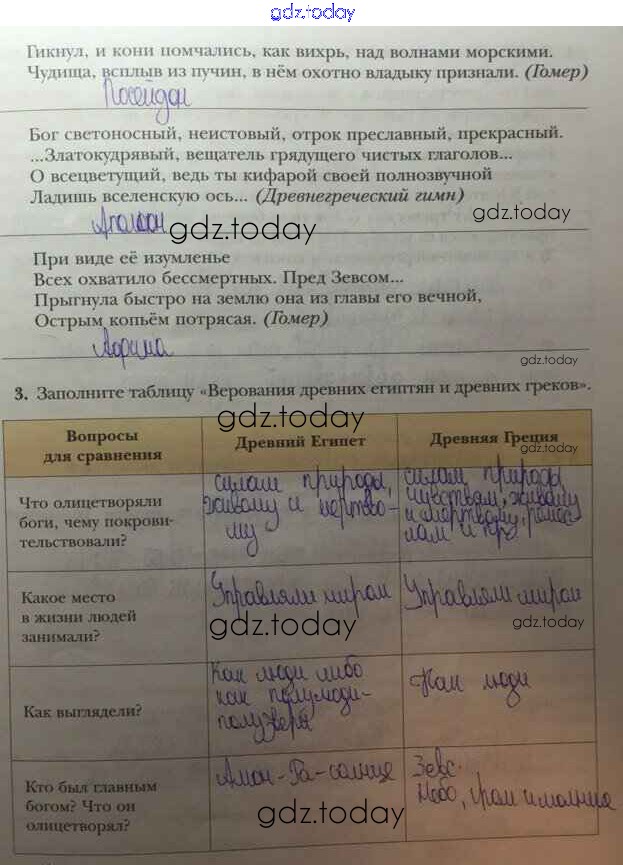 gdz.today
Гикнул, и кони помчались, как вихрь, над волнами морскими.
Чудища, всплыв из пучин, в нём охотно владыку признали. (Гомер)
Посейдон
Бог светоносный, неистовый, отрок преславный, прекрасный.
...Златокудрявый, вещатель грядущего чистых глаголов...
О всецветущий, ведь ты кифарой своей полнозвучной
Ладишь вселенскую ось... (Древнегреческий гимн)
gdz.today
Аполлон
gdz.today
При виде её изумленье
Всех охватило бессмертных. Пред Зевсом...
Прыгнула быстро на землю она из главы его вечной,
Острым копьём потрясая. (Гомер)
Афина
gdz.today
3. Заполните таблицу «Верования древних египтян и древних греков».
gdz.today
Вопросы
для сравнения
Древний Египет
Древняя Греция
gdz.today
Что олицетворяли
боги, чему покрови-
тельствовали?
силам природы,
живому и мертво-
му
силам природы,
чувствам, живому
и мёртвому, ремес
лам и пр
gdz.today
Какое место
в жизни людей
занимали?
Управляли миром
Управляли миром
gdz.today
gdz.today
Как выглядели?
Как люди либо
как полулюди-
полузвери
Как люди
Кто был главным
богом? Что он
олицетворял?
Амон-Ра-солнце
Зевс.
Небо, гром и молния
gdz.today
gdz.today